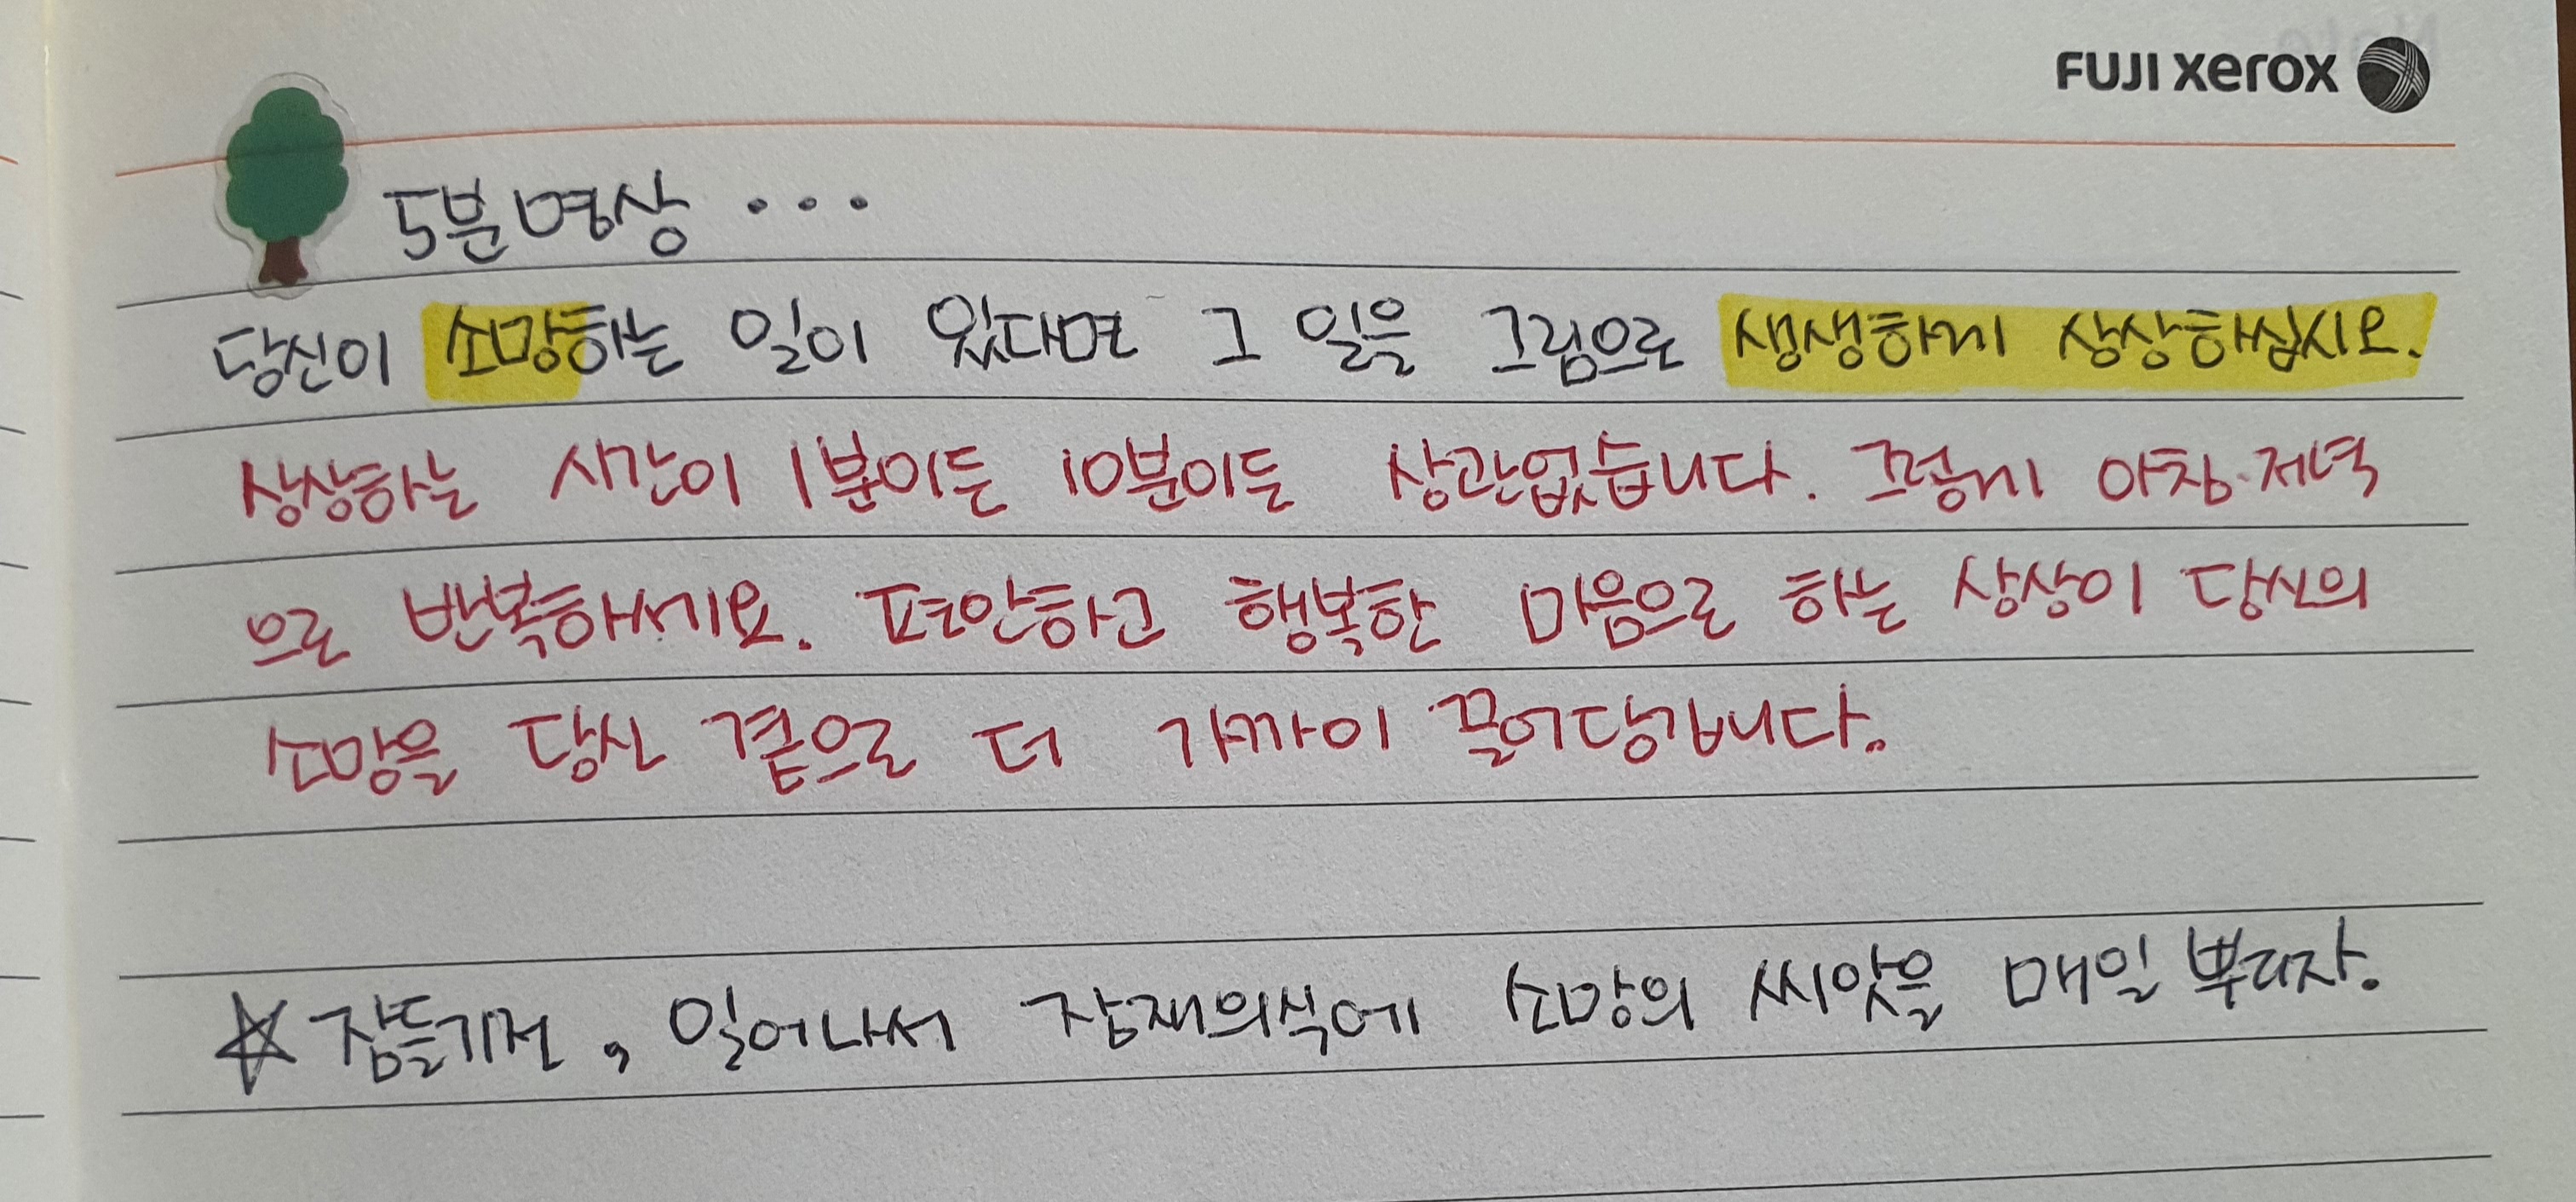 FUJI xerox
5분명상 ...
당신이 소망하는 일이 있다면 그 일을 그림으로 생생하게 상상하십시오.
상상하는 시간이 1분이든 10분이든 상관없습니다. 그렇게 아침·저녁
으로 반복하세요. 편안하고 행복한 마음으로 하는 상상이 당신의
소망을 당신 곁으로 더 가까이 끌어당깁니다.
☆ 잠들기전, 일어나서 잠재의식에 소망의 씨앗을 매일 뿌리자.